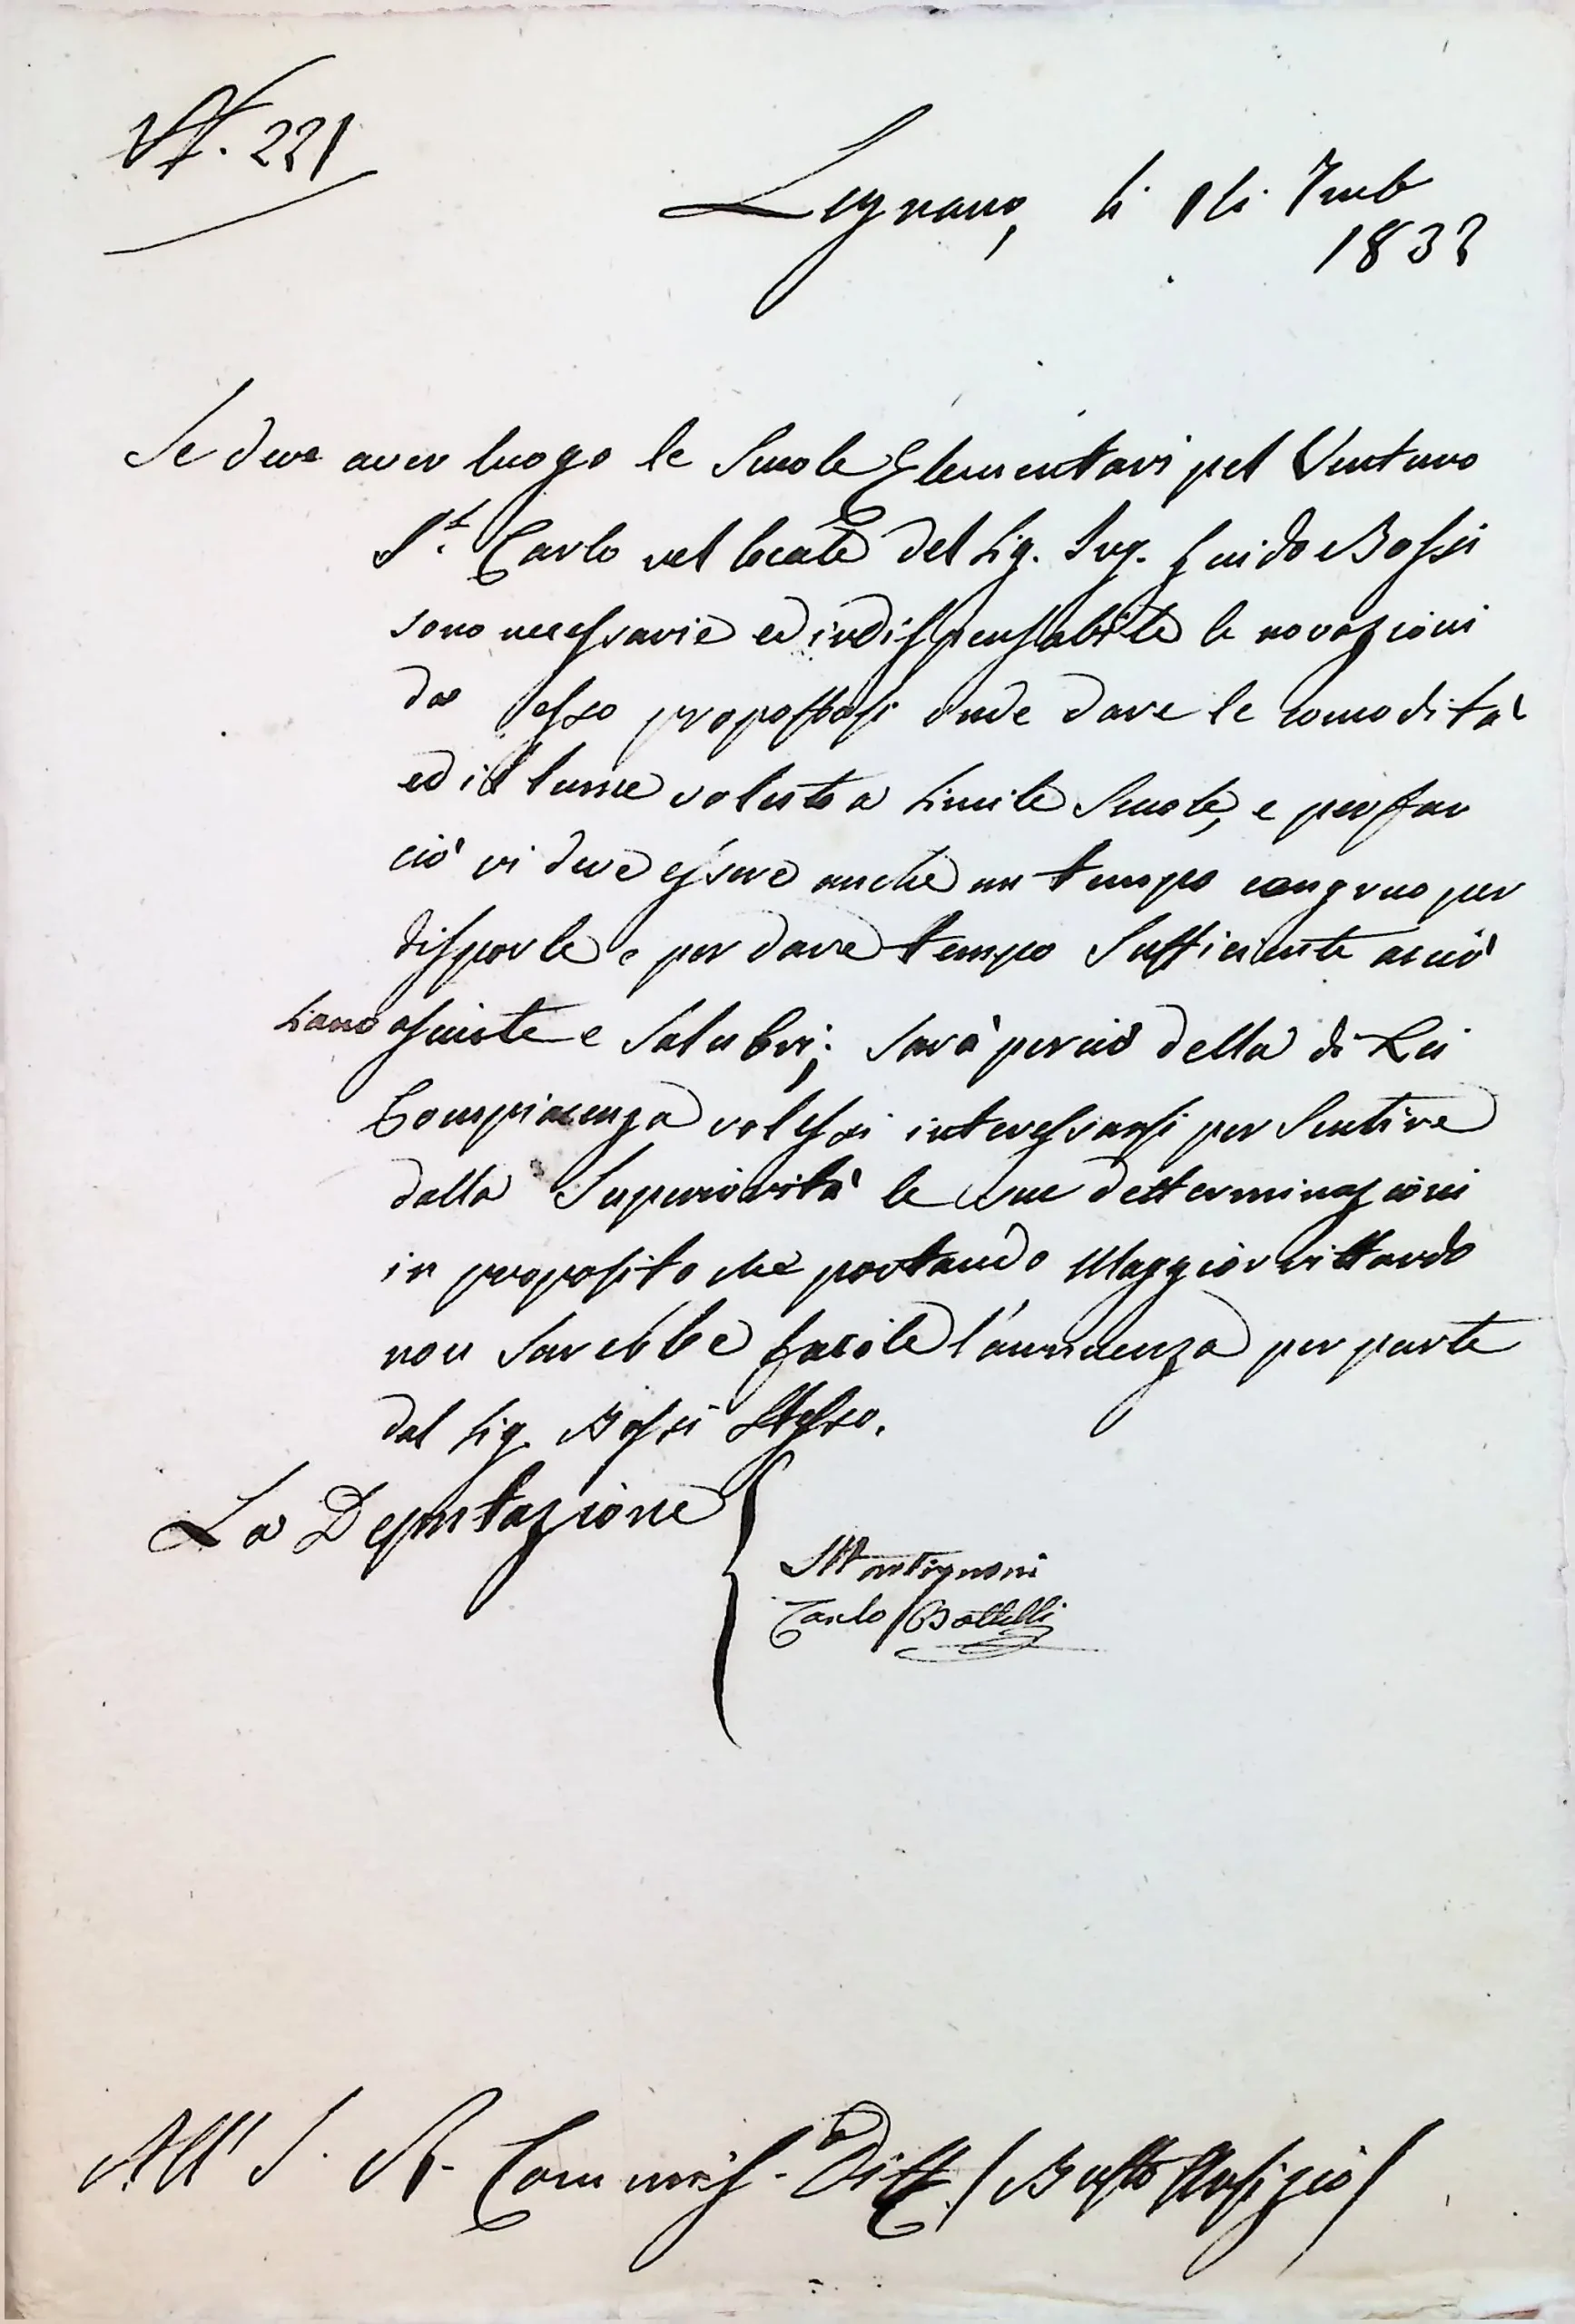 N. 221
Legnano, li 1 li 7mb
1832
Se deve aver luogo le Scuole Elementari pel Venturo
St. Carlo nel locale del Sig. Ing. Guido Bossi
sono necessarie ed indispensabile le novazioni
da esso propostosi onde dare le comodità
ed il lume voluto a simile Scuole, e per far
ciò vi deve essere anche un tempo congruo per
disporle e per dare tempo sufficiente acciò
siano asciute e salubri; sarà perciò della di Lei
Compiacenza volersi interessarsi per sentire
dalla Superiorità le sue detterminazioni
in proposito che portando Maggior rittardo
non sarebbe facile l'annuenza per parte
del Sig. Bossi Stesso.
La Deputazione
Carlo Bottelli
All' I. R. Commiss. Distt. / Busto Arsizio /